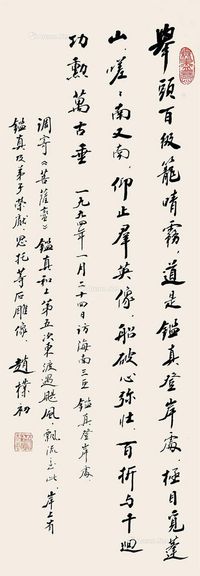 舉頭百級籠晴霧，道是鑑真登岸處，極目覓蓬
山，嗟嗟南又南，仰止羣英像，船破心弥壯，百折与千迴
功勲萬古垂
一九九四年一月二十四日访海南三亞鑑真登岸處，
调寄《菩薩蠻》鑑真和上第五次東渡遇颶风，飄流至此，岸上有
鑑真及弟子榮叡、思托等石雕像。
趙樸初